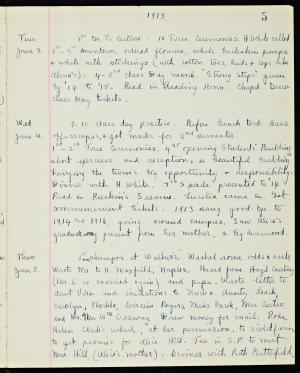 1913
5
Tues
June 3.
8°° Dr. T's lecture. 10 Tree Ceremonies. H. White called
1°°-3°° downtown, ordered flowers, white buckskin pumps
& white silk stockings (with cotton toes, heels & tops like
Alma's). 4-5 class Day march. "Strong steps" given
by '14 to '15. Read in Reading Room. Chapel. Drew
class Day tickets.
Wed.
June 4.
9-10 class day practice. Before lunch took dress
off campus, & got marks for 2nd semester.
1°°-2°° Tree Ceremonies, 4 opening Students' Building
about speeches and reception, a beautiful building
bringing the town's big opportunity & responsibility.
Dinner with H. White. 7 Spade presented to '14
Read in Ruskin's Sesame. Lucilia came in. Got
commencement tickets. 1913 sang good bye to
1914 and 1916, going around campus. Saw Alice's
graduation present from her mother, a big diamond.
Thurs
June 5.
at Walker's. Washed some odds & ends
Wrote Mrs. D. H. Mayfield, Naples. Heard from Hazel
(Mr. C. is married again) and papa. Wrote letter to
Aunt Vira and invitations to Uncle Austin, Jack,
Carolyn, Thelda, Lorraine Rogers, Miss Pack, Mrs. Curtis
and Mr. Mrs Wm Creaway. Drew money for mail. Rode
Helen Clark's wheel, at her permission, to
to get peonies for Alice Hill. Tea in S.P. to meet
Mrs. Hill (Alice's mother). Dinner with Ruth Butterfield,